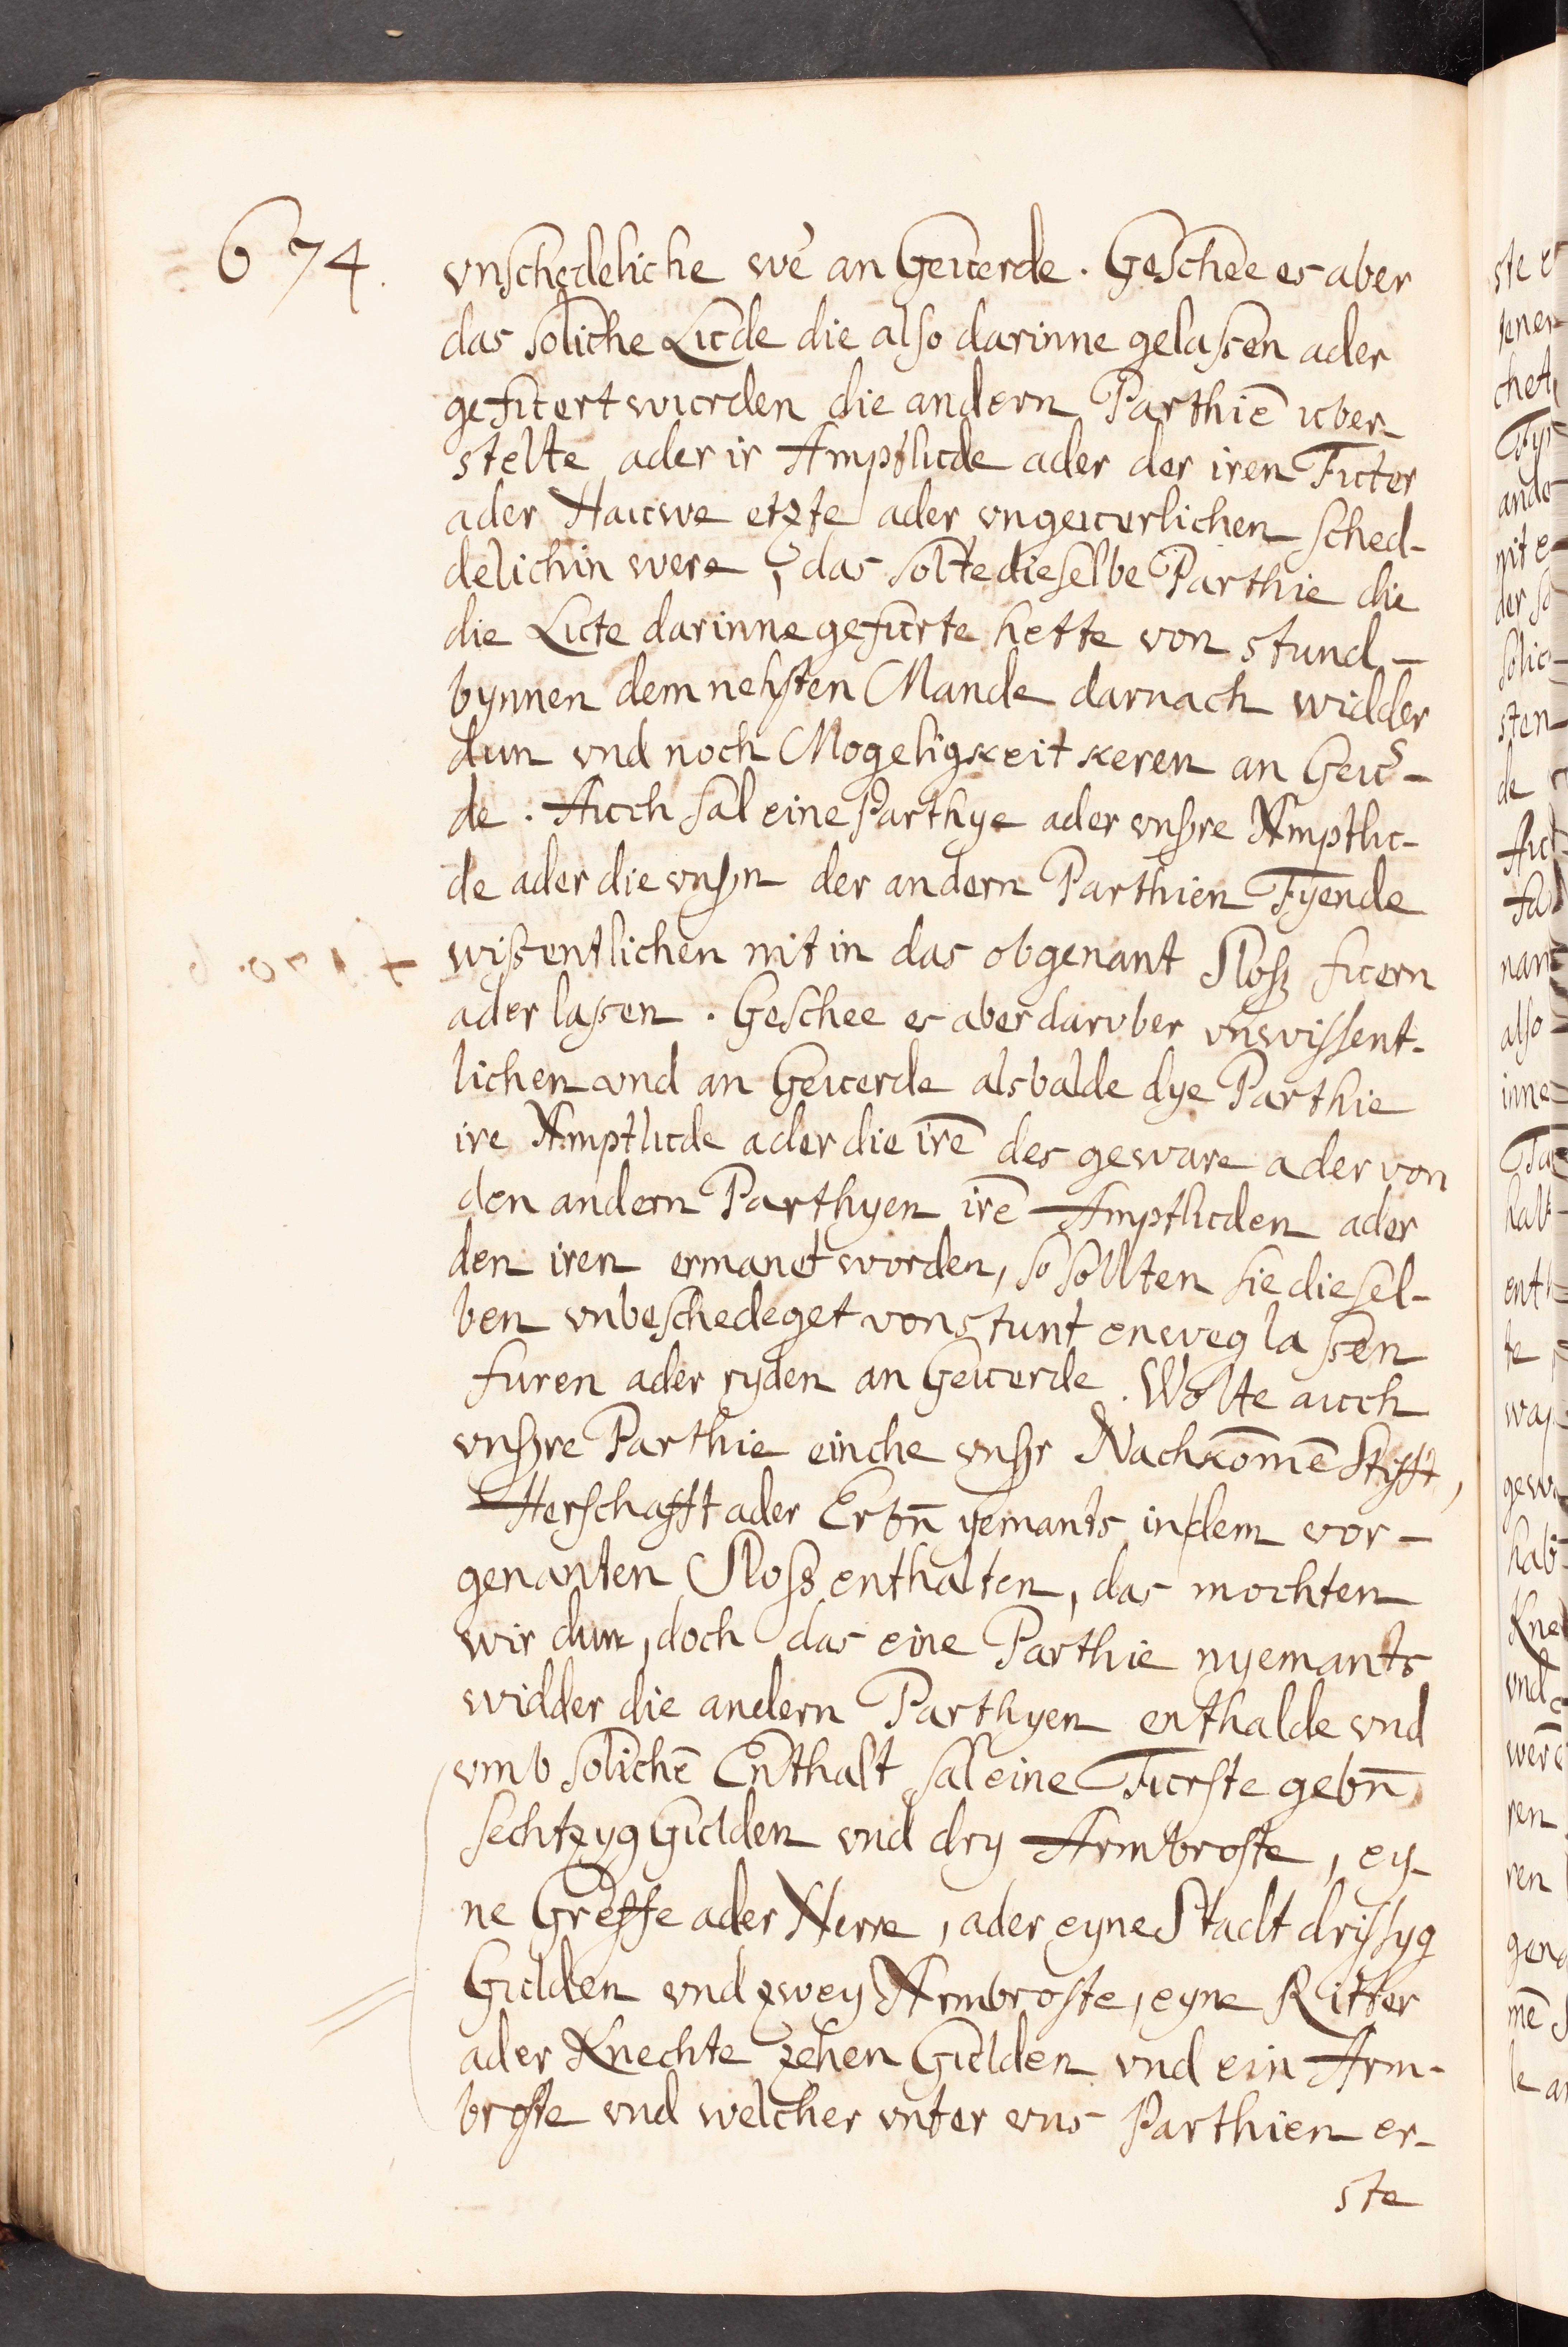 674.
vnschedeliche wē an Geuerde. Geschee es aber
das soliche Lude die also darinne gelassen ader
gefuert wurden die andern Parthiē uber-
stelte ader ir Amptlude ader der iren Futer
ader Hauwe etzte ader vngeuerlichen sched-
delichin were, das solte dieselbe Parthie die
die Lute darinne gefurte hette von stund
bynnen dem nehsten Mande darnach widder
dun vnd noch Mogeligkeit keren an Geu-
de. Auch sal eine Parthye ader vnsre Amptlu-
de ader die vnsn der andern Parthien Fyende
wißentlichen nit in das obgenant Sloß fuern
ader lassen. Geschee es aber darvber vnwissent-
lichen vnd an Geuerde alsbalde dye Parthie
ire Amptlude ader die irē des geware ader von
den andern Parthyen irē Amptluden ader
den iren ermanet worden, so sollten sie diesel-
ben vnbeschedeget von stunt enweg lassen
furen ader ryden an Geuerde. Wolte auch
vnsre Parthie einche vnsr Nachkōmē Styfft,
Herschafft ader Erbn̄ yemants in dem vor-
genanten Sloß enthalten, das mochten
wir dun, doch das eine Parthie nyemants
widder die andern Parthyen enthalde vnd
vmb solichē Enthalt sal eine Furste gebn̄
sechtzyg Gulden vnd dry Armbroste, ey-
ne Greffe ader Herre, ader eyne Stadt drissyg
Gulden vnd zwey Armbroste, eyne Ritter
ader Knechte zehen Gulden vnd ein Arm-
broste vnd welcher vnter vns Parthien er-
ste